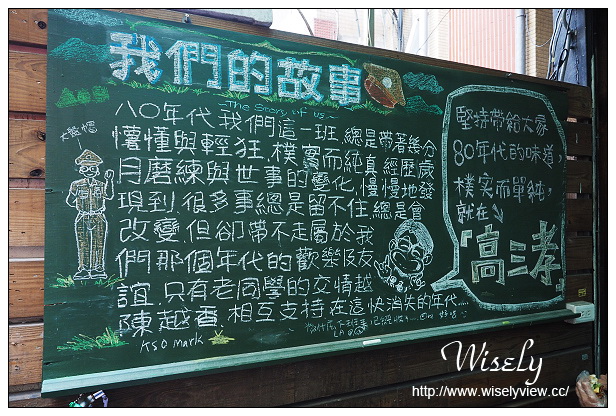 我們的故事
The Story of us~
八〇年代我們這一班,總是帶著幾分
懵懂與輕狂.樸實而純真,經歷歲
月磨練與世事的變化,慢慢地發
現到.很多事總是留不住,總是會
改變.但卻帶不走屬於我
們那個年代的歡樂及友
誼.只有老同學的交情越
陳越香.相互支持.在這快消失的年代....
KSO mark
大盤帽
堅持帶給大家
80年代的味道,
樸實而單純,
就在↘
「高三孝
Wisely
http://www.wiselyview.cc/